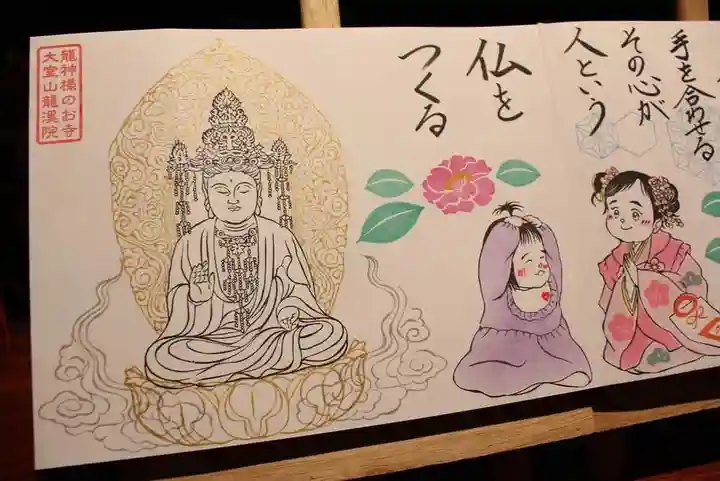 手を合わせる
その心が
人という
仏を
つくる
龍神様のお寺
大室山龍渓院